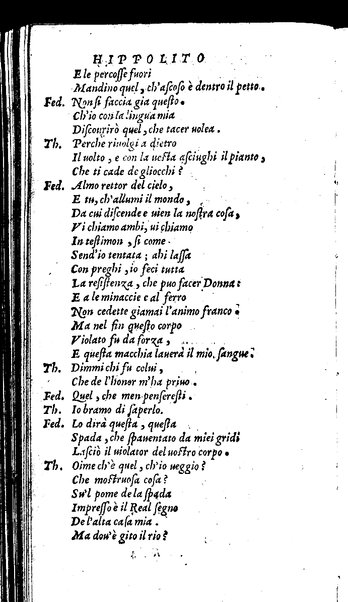 HIPPOLITO
E le percosse fuori
Mandino quel, ch'ascoso è dentro il petto.
Fed. Non si faccia gia questo.
Ch'io con la lingua mia
Discourirò quel, che tacer uolea.
Th. Perche riuolgi a dietro
Il uolto, e con la uesta asciughi il pianto,
Che ti cade de gliocchi?
Fed. Almo rettor del cielo,
E tu, ch'allumi il mondo,
Da cui discende e uien la nostra cosa,
Vi chiamo ambi, ui chiamo
In testimon, si come
Send'io tentata; ahi lassa
Con preghi, io feci tutta
La resistenza, che puo facer Donna:
E a le minaccie e al ferro
Non cedette giamai l'animo franco:
Ma nel fin questo corpo
Violato fu da forza,
E questa macchia lauerà il mio sangue.
Th. Dimmi chi fu colui,
Che de l'honor m'ha priuo.
Fed. Quel, che men penseresti.
Th. Io bramo di saperlo.
Fed. Lo dirà questa, questa
Spada, che spauentato da miei gridi
Lasciò il uiolator del uostro corpo.
Th. Oime ch'è quel, ch'io ueggio?
Che mostruosa cosa?
Su'l pome de la spada
Impresso è il Real segno
De l'alta casa mia.
Ma dou'è gito il rio?